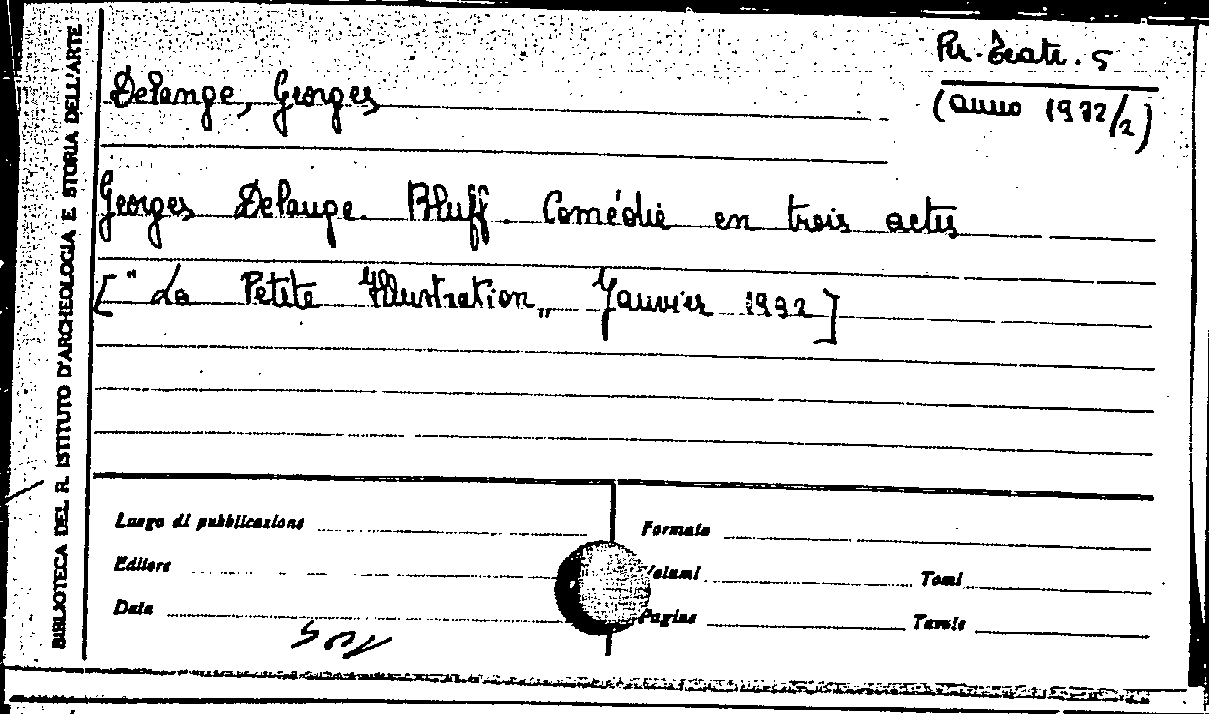 Delange, Georges
Riv. Teatr. 5
(anno 1932/2)
Georges Delange. Bluff. Comédie en trois actes
["La Petite Illustration„ Janvier 1932]
BIBLIOTECA DEL R. ISTITUTO D'ARCHEOLOGIA E STORIA DELL'ARTE
Luogo di pubblicazione
Formato
Editore
Volumi
Tomi
Data
Pagine
Tavole